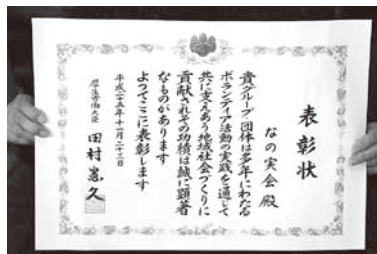 表彰状
なの実会殿
貴グループ・団体は多年にわたる
ボランティア活動の実践を通して
共に支えあう地域社会づくりに
貢献されその功績は誠に顕著
なものがあります
よってここに表彰します
平成二十五年十一月二十三日
厚生労働大臣 田村憲久